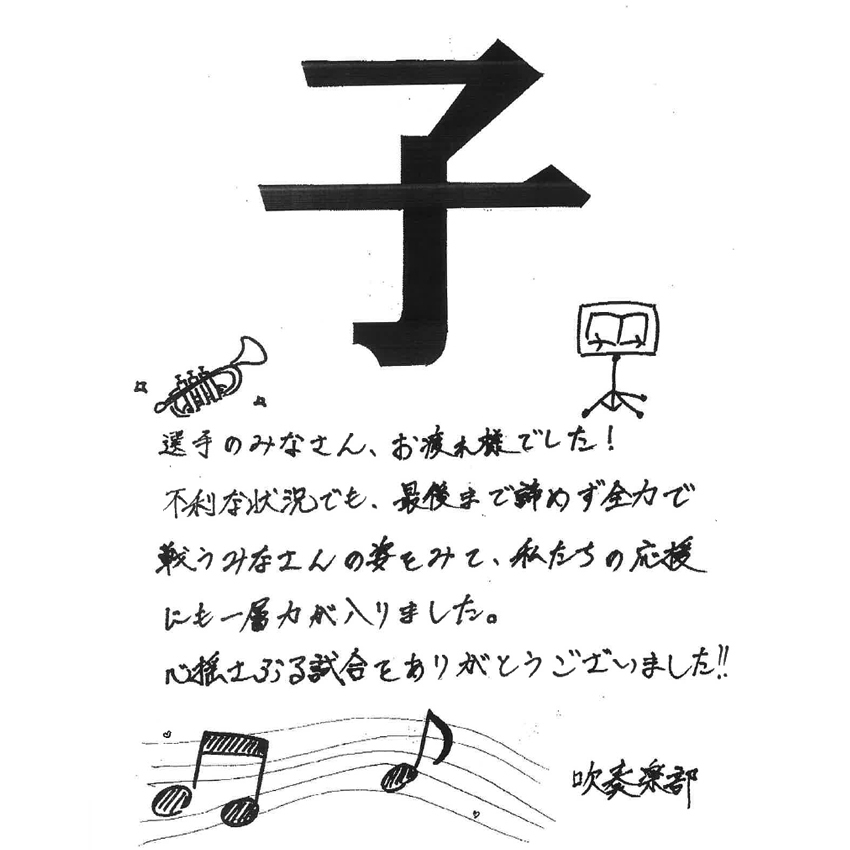 子
選手のみなさん、お疲れ様でした!
不利な状況でも、最後まで諦めず全力で
戦うみなさんの姿をみて、私たちの応援
にも一層力が入りました。
心揺さぶる試合をありがとうございました!!
吹奏楽部